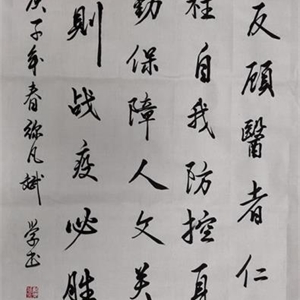 反顧醫者仁
自我防控真
勤保障人文
則战疫必胜
庚子年春弥凡斌 学书